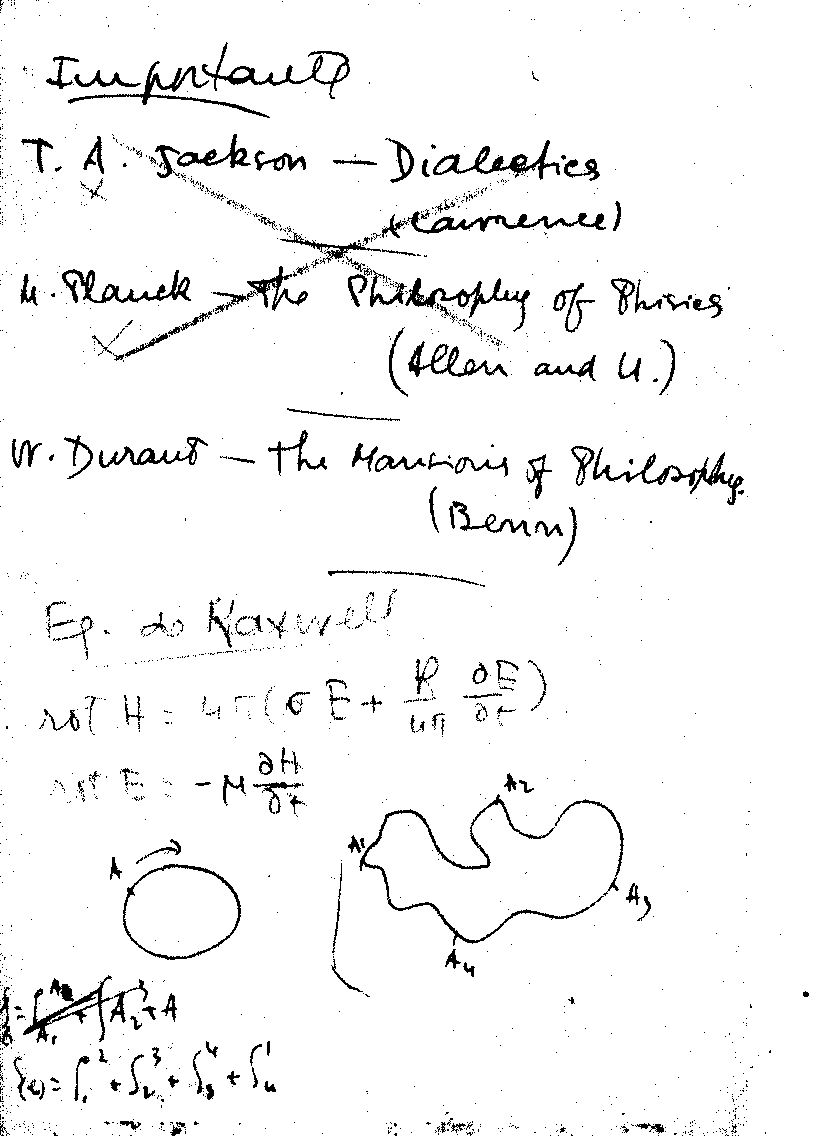 Importante
T. A. Jackson — Dialectics
(Lawrence)
M. Planck — The Philosophy of Phisics
(Allen and U.)
W. Durant — The Mansions of Philosophy.
(Benn)
Eq. do Maxwell
rot H = 4π(σ E + K/4π ∂E/∂t)
rot E = -μ ∂H/∂t
A
A1
A2
A3
A4
∫(c) = ∫₁² + ∫₂³ + ∫₃⁴ + ∫₄¹